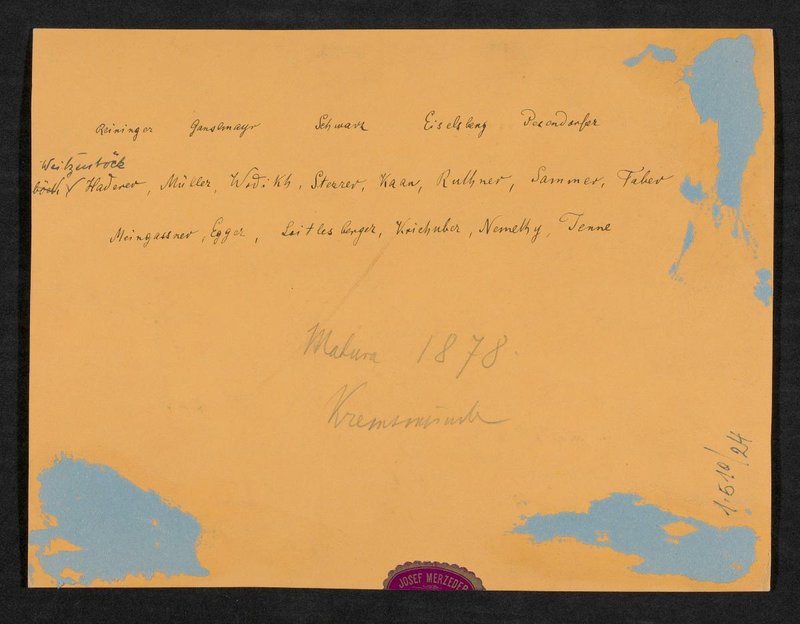 Reininger Ganslmayr Schwarz Eiselsberg Pesendorfer
Weitzenböck
böck Haderer, Müller, Wodikh, Sterrer, Kaan, Ruthner, Sammer, Faber
Meingassner, Egger, Leitlesberger, Kriehuber, Nemethy, Jenne
Matura 1878.
Kremsmünde
1.510/24
JOSEF MERZEDER